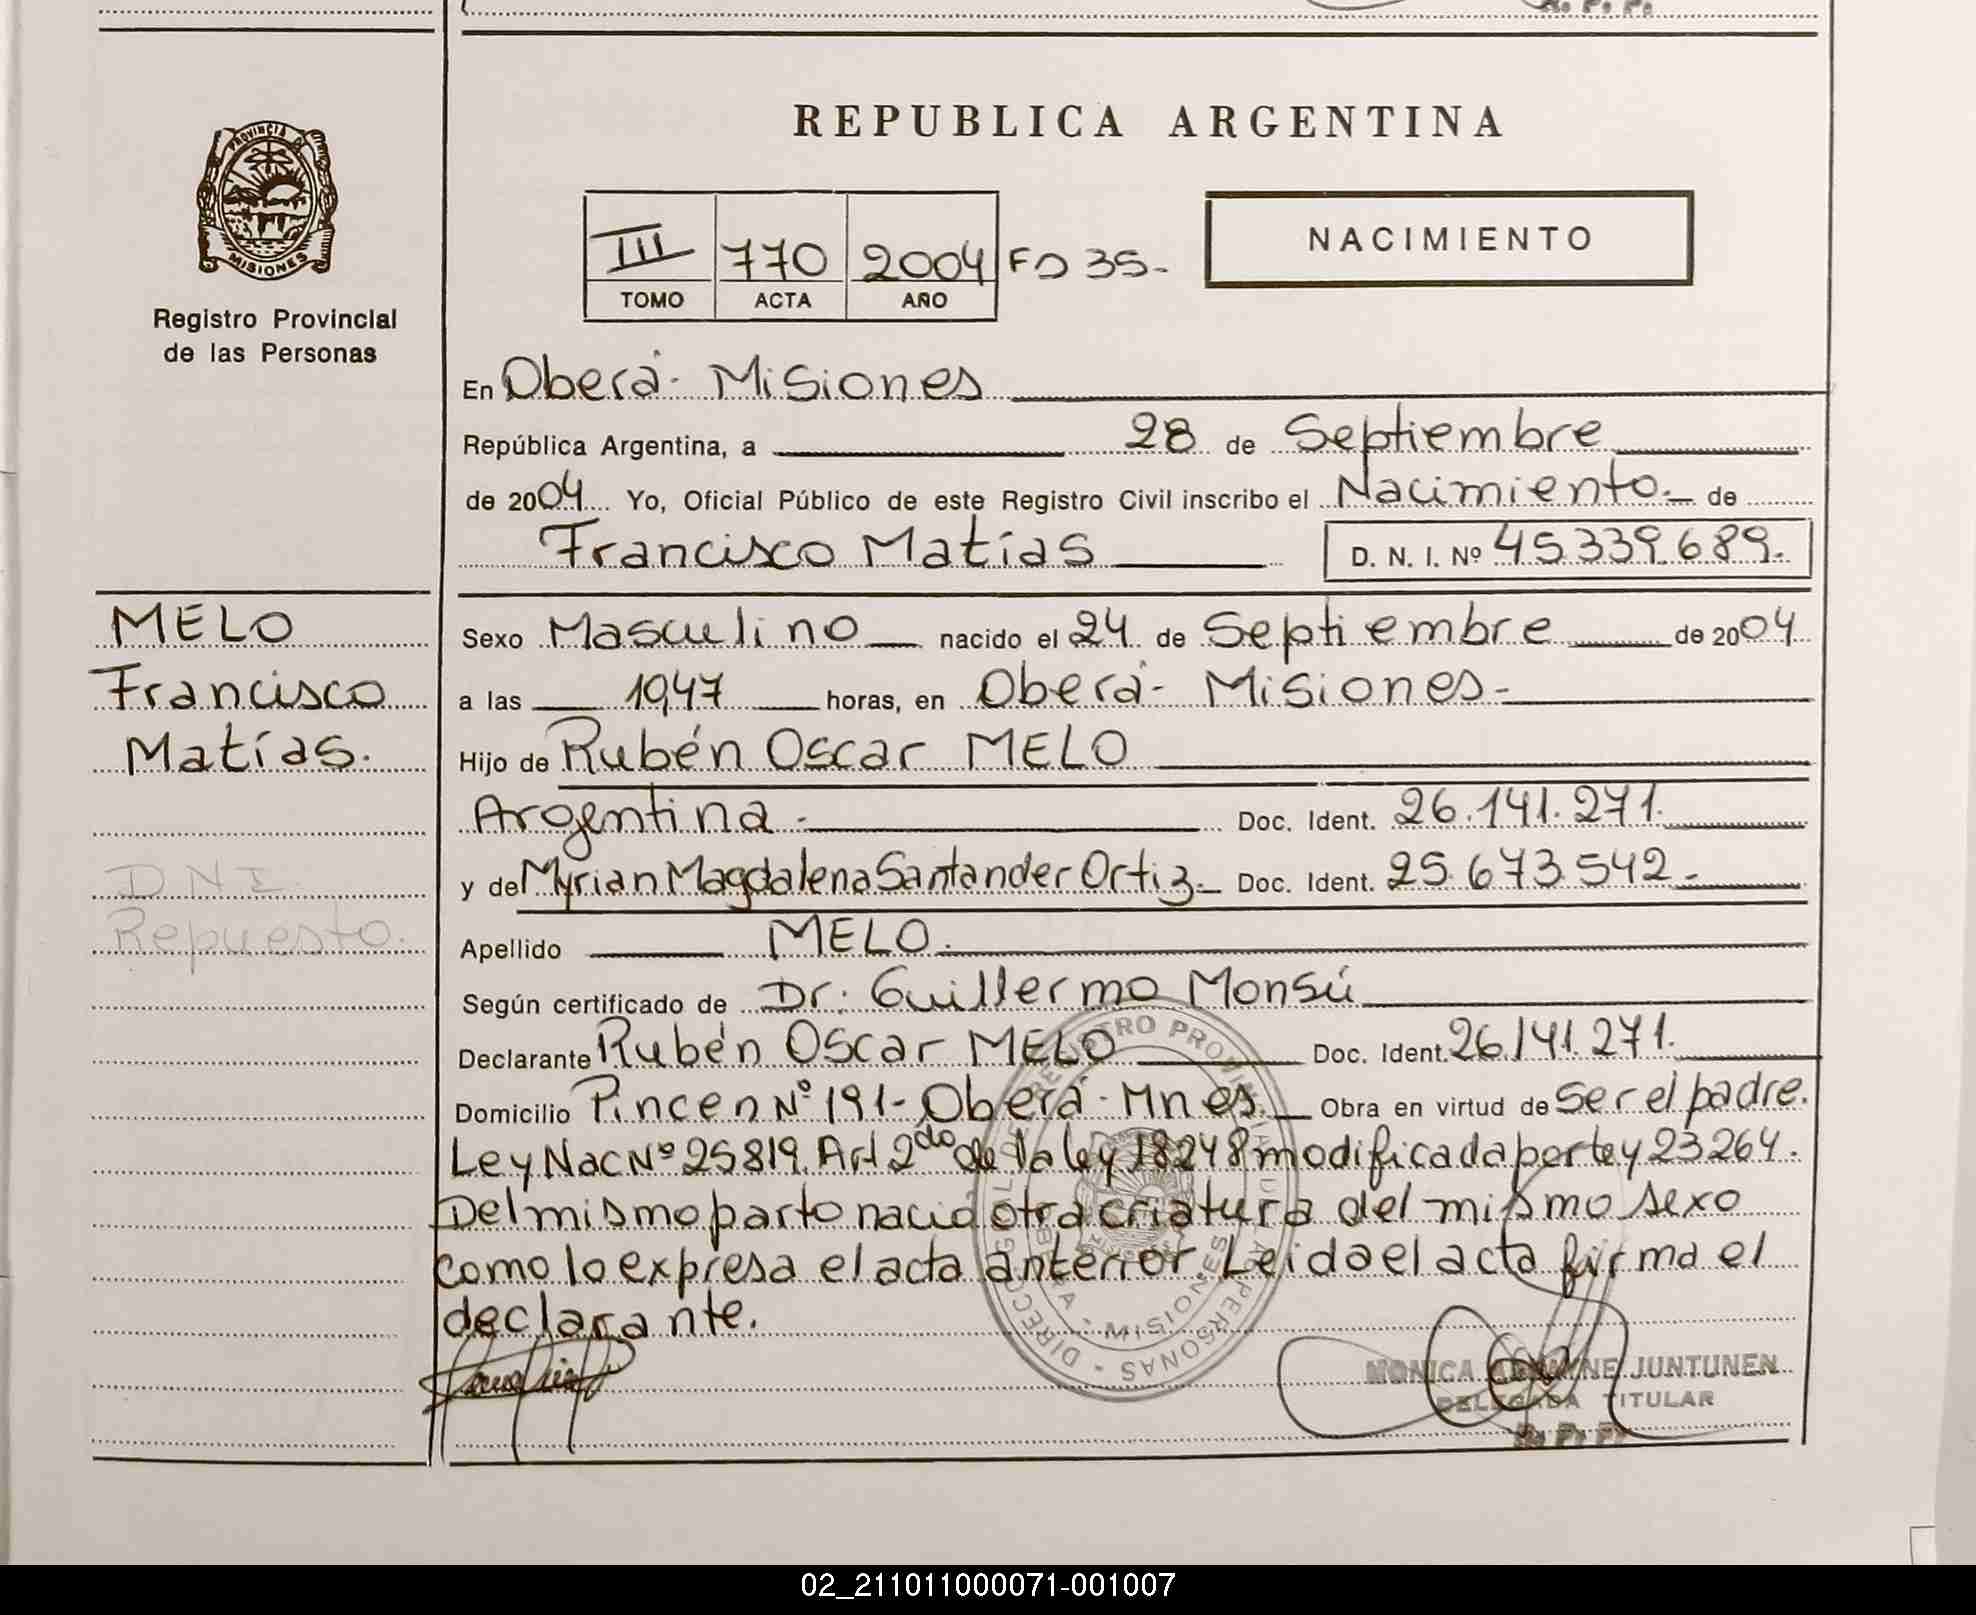 PROVINCIA DE
MISIONES
Registro Provincial
de las Personas
REPUBLICA ARGENTINA
III 770 2004 Fo 35-
TOMO ACTA AÑO
NACIMIENTO
En Oberá- Misiones
República Argentina, a 28 de Septiembre
de 2004 Yo, Oficial Público de este Registro Civil inscribo el Nacimiento.- de
Francisco Matías D. N. I. Nº 45.339.689.
MELO
Francisco
Matías.
DNI
Repuesto.
Sexo Masculino nacido el 24 de Septiembre de 2004
a las 19,47 horas, en Oberá- Misiones-
Hijo de Rubén Oscar MELO
Argentina - Doc. Ident. 26.141.271.
y de Myrian Magdalena Santander Ortiz.- Doc. Ident. 25.673.542.-
Apellido MELO.
Según certificado de Dr. Guillermo Monsú
Declarante Rubén Oscar MELO Doc. Ident. 26.141.271.
Domicilio Pincen Nº 191- Oberá- Mnes. Obra en virtud de Ser el padre.
Ley Nac Nº 25819. Art 2do de la ley 18248 modificada por ley 23264.
Del mismo parto nació otra criatura del mismo sexo
como lo expresa el acta anterior. Leída el acta firma el
declarante.
DIRECC. GRAL. DE REGISTRO PROVINCIAL DE LAS PERSONAS -
OBERA - MISIONES
MONICA JUNTUNEN
DELEGADA TITULAR
R. P. P.
02_211011000071-001007